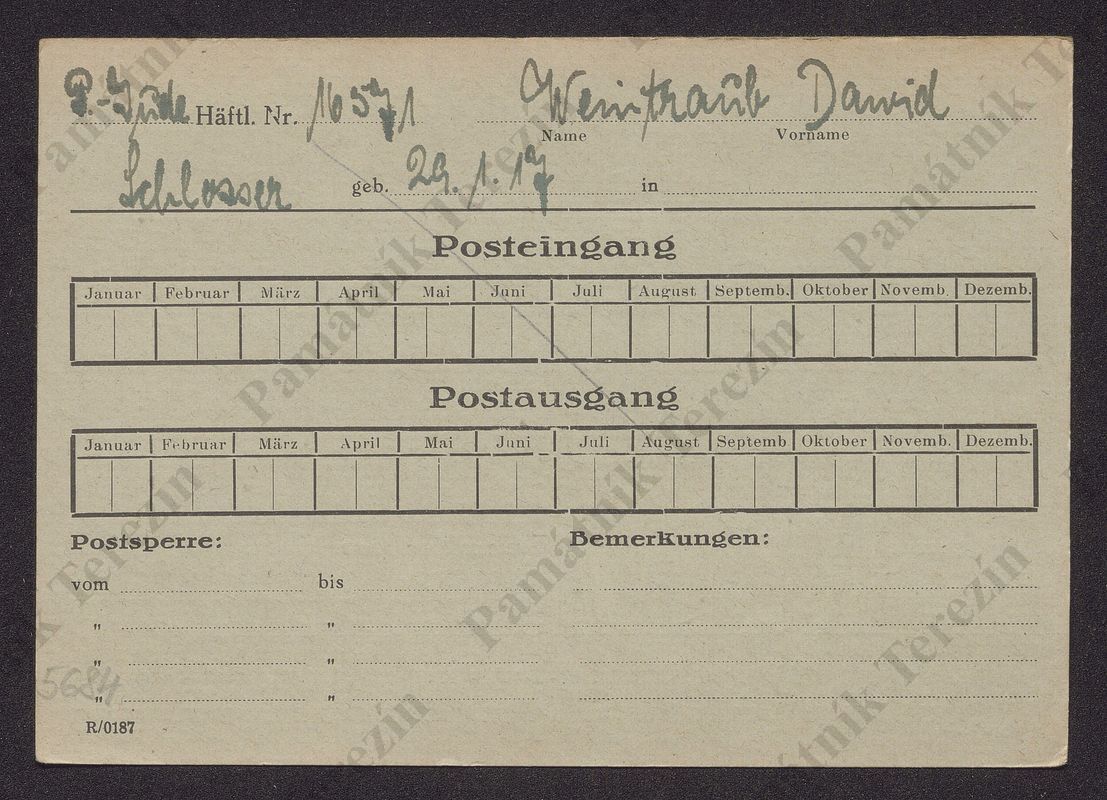 P.-Jude Häftl. Nr. 16571 Weintraub Dawid
Name Vorname
Schlosser geb. 29. 1. 17 in
Posteingang
Januar Februar März April Mai Juni Juli August Septemb. Oktober Novemb. Dezemb.
Postausgang
Januar Februar März April Mai Juni Juli August Septemb Oktober Novemb. Dezemb.
Postsperre: Bemerkungen:
vom bis
" "
" "
5684
" "
R/0187
Památník Terezín